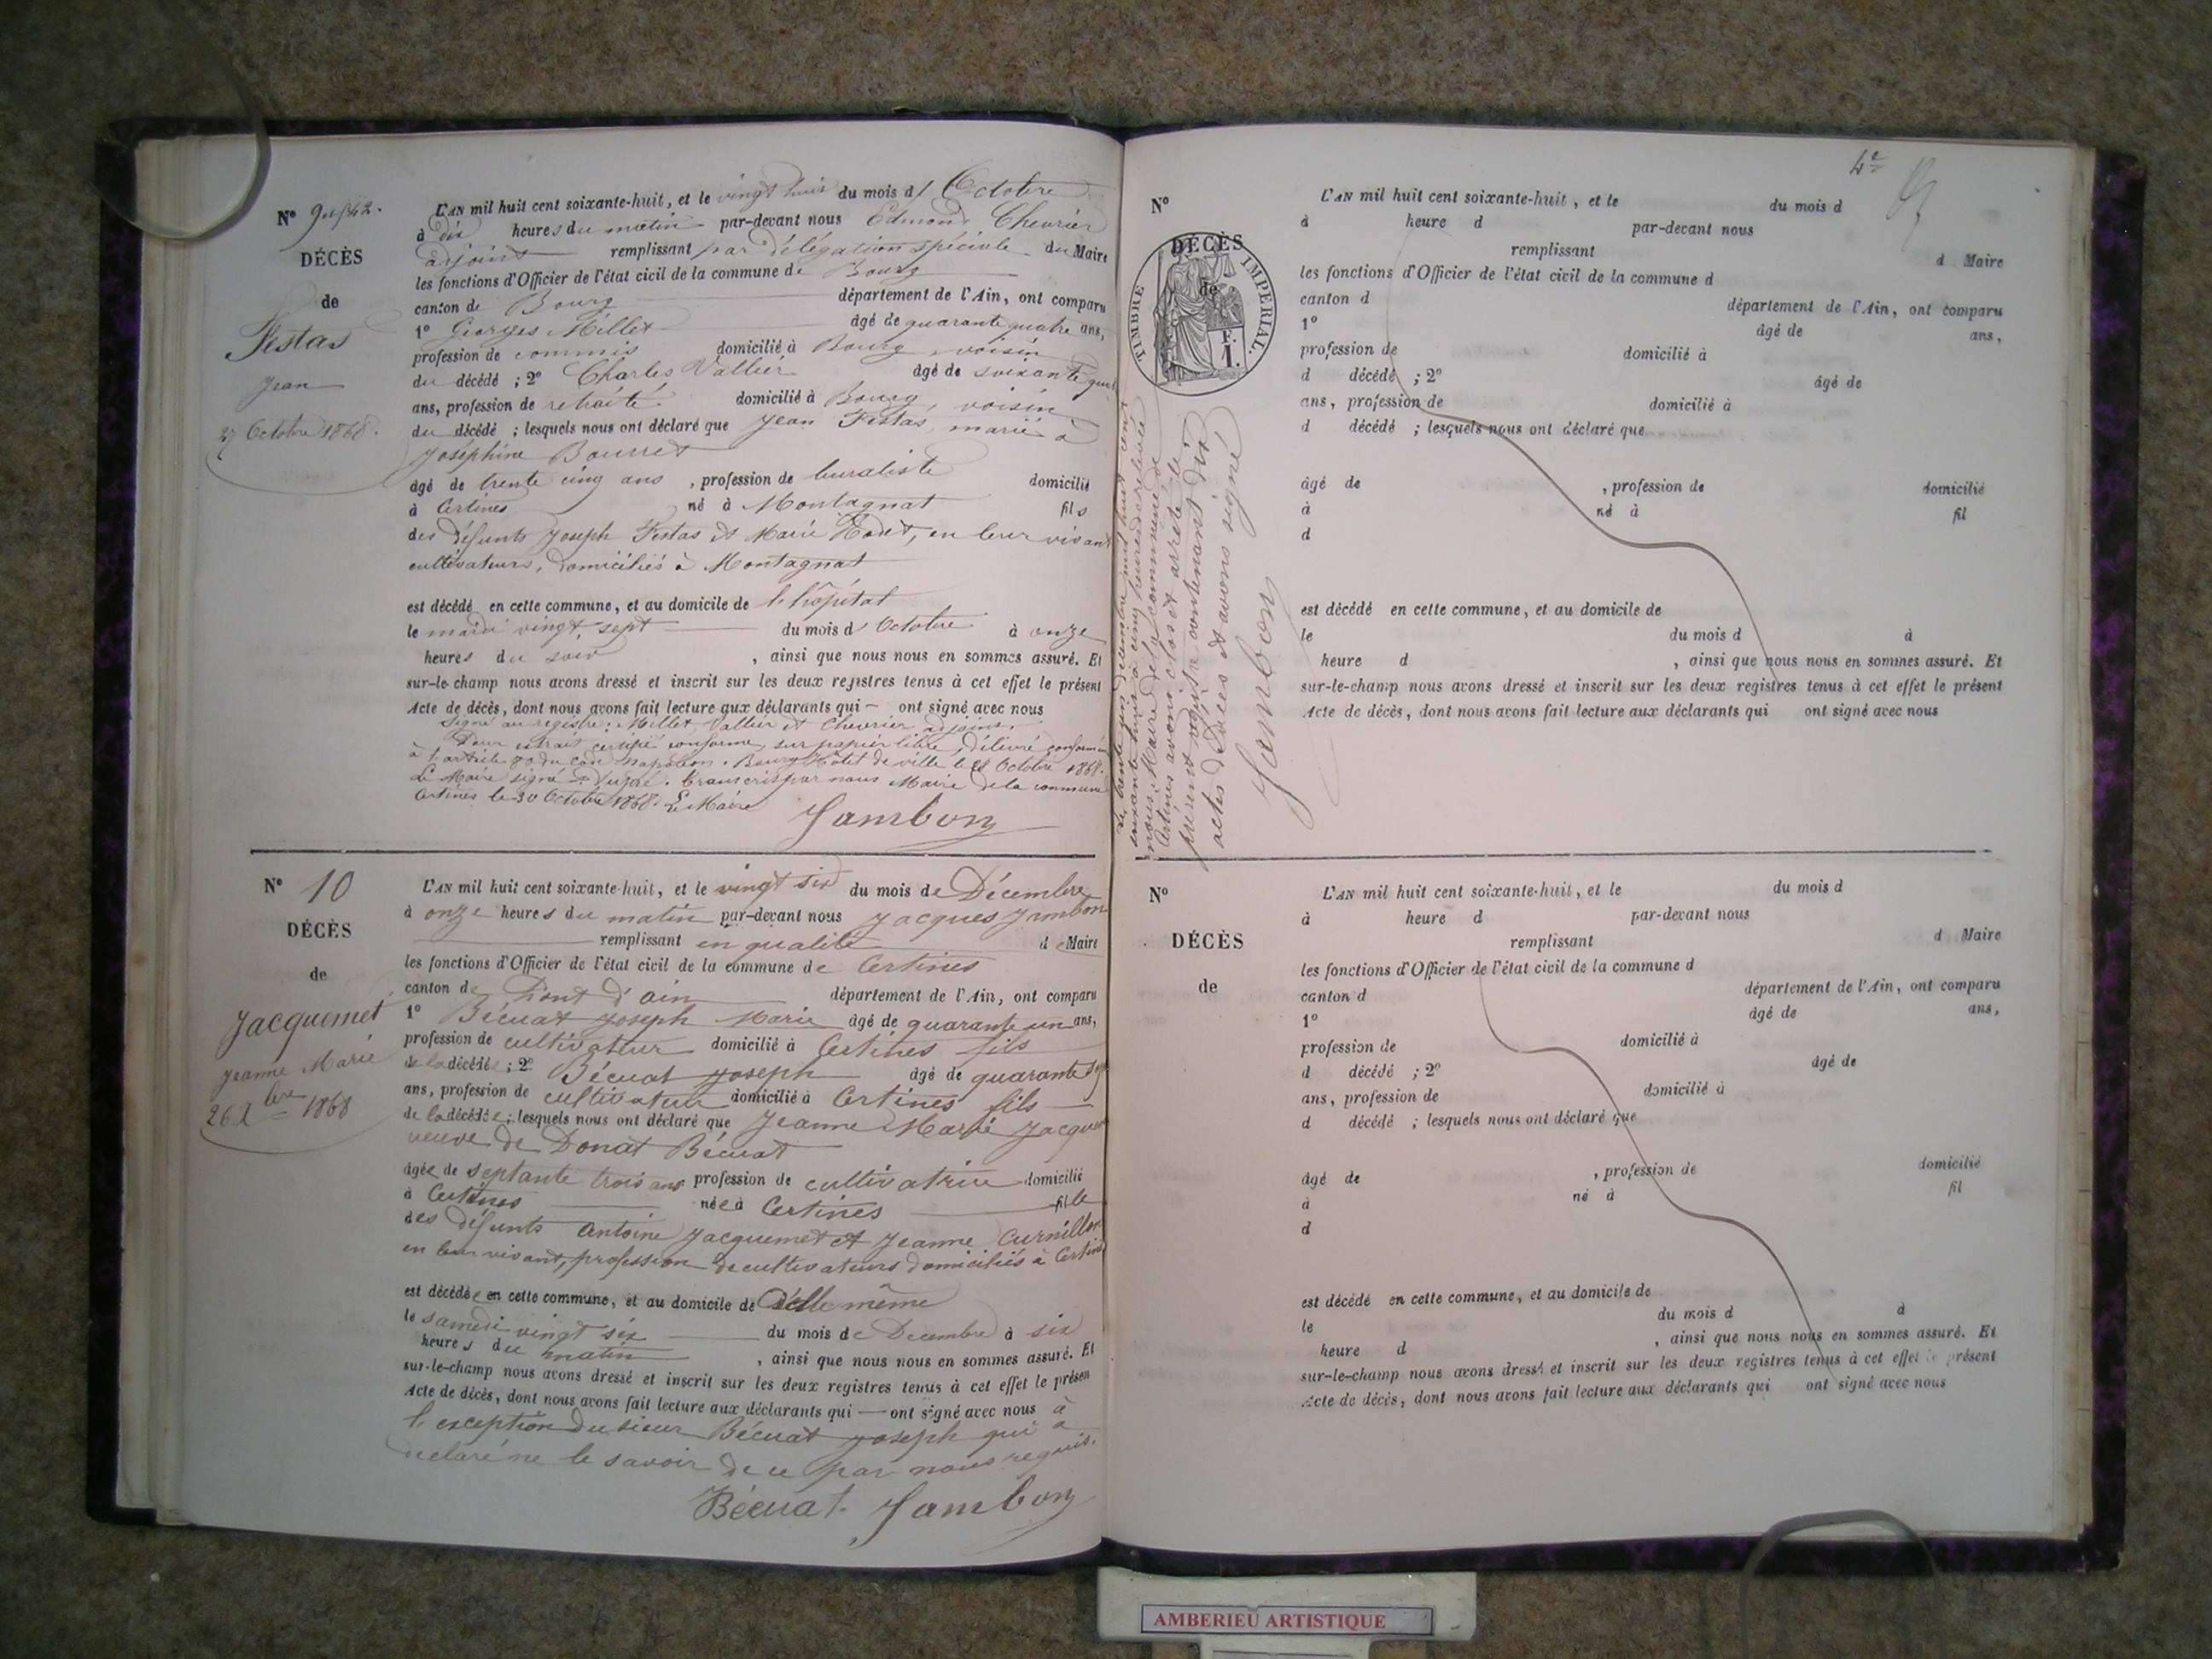 N° 9
DÉCÈS
de
Festas
Jean
27 Octobre 1868.
L'AN mil huit cent soixante-huit, et le vingt huit du mois d' Octobre
à dix heures du matin par-devant nous Edmond Chevrier
adjoint remplissant par délégation spéciale du Maire
les fonctions d'Officier de l'état civil de la commune de Bourg
canton de Bourg département de l'Ain, ont comparu
1° Georges Millet âgé de quarante quatre ans,
profession de commis domicilié à Bourg, voisin
du décédé ; 2° Charles Vallier âgé de soixante
ans, profession de retraité domicilié à Bourg, voisin
du décédé ; lesquels nous ont déclaré que Jean Festas, marié à
Joséphine
âgé de trente cinq ans , profession de buraliste domicilié
à Certines né à Montagnat fils
des défunts Joseph Festas et Marie en leur vivant
cultivateurs, domiciliés à Montagnat
est décédé en cette commune, et au domicile de l'hôpital
le mardi vingt sept du mois d' Octobre à onze
heures du soir , ainsi que nous nous en sommes assuré. Et
sur-le-champ nous avons dressé et inscrit sur les deux registres tenus à cet effet le présent
Acte de décès, dont nous avons fait lecture aux déclarants qui — ont signé avec nous
Signé au registre : Millet, Vallier et Chevrier, adjoint.
Pour extrait certifié conforme, sur papier libre, délivré
à l'article 80 du code Napoléon. Bourg, Hôtel de ville le 28 Octobre 1868.
Le Maire signé Transcris par nous Maire de la commune
Certines le 30 Octobre 1868. Le Maire
Jambon
N° 10
DÉCÈS
de
Jacquemet
Jeanne Marie
26 Xbre 1868
L'AN mil huit cent soixante-huit, et le vingt six du mois de Décembre
à onze heures du matin par-devant nous Jacques Jambon
remplissant en qualité de Maire
les fonctions d'Officier de l'état civil de la commune de Certines
canton de Pont d'ain département de l'Ain, ont comparu
1° Bécuat Joseph Marie âgé de quarante un ans,
profession de cultivateur domicilié à Certines fils
de la décédée ; 2° Bécuat Joseph âgé de quarante
ans, profession de cultivateur domicilié à Certines fils
de la décédée ; lesquels nous ont déclaré que Jeanne Marie
veuve de Donat Bécuat
âgée de septante trois ans profession de cultivatrice domicilié
à Certines née à Certines fille
des défunts Antoine Jacquemet et Jeanne
en leur vivant, profession de cultivateurs domiciliés à Certines
est décédée en cette commune, et au domicile de d'elle même
le samedi vingt six du mois de Décembre à six
heures du matin , ainsi que nous nous en sommes assuré. Et
sur-le-champ nous avons dressé et inscrit sur les deux registres tenus à cet effet le présent
Acte de décès, dont nous avons fait lecture aux déclarants qui — ont signé avec nous à
l'exception du sieur Bécuat Joseph qui a
déclaré ne le savoir de ce par nous requis.
Bécuat Jambon
4e
N°
DÉCÈS
de
TIMBRE IMPÉRIAL.
F.
1.
Le trente un décembre mil huit cent
soixante huit à cinq heures
nous, Maire de la commune de
Certines avons clos et arrêté le
présent registre contenant dix
actes de Décès et avons signé
Jambon
L'AN mil huit cent soixante-huit, et le du mois d
à heure d par-devant nous
remplissant d Maire
les fonctions d'Officier de l'état civil de la commune d
canton d département de l'Ain, ont comparu
1° âgé de ans,
profession de domicilié à
d décédé ; 2° âgé de
ans, profession de domicilié à
d décédé ; lesquels nous ont déclaré que
âgé de , profession de domicilié
à né à fil
d
est décédé en cette commune, et au domicile de
le du mois d à
heure d , ainsi que nous nous en sommes assuré. Et
sur-le-champ nous avons dressé et inscrit sur les deux registres tenus à cet effet le présent
Acte de décès, dont nous avons fait lecture aux déclarants qui ont signé avec nous
N°
DÉCÈS
de
L'AN mil huit cent soixante-huit, et le du mois d
à heure d par-devant nous
remplissant d Maire
les fonctions d'Officier de l'état civil de la commune d
canton d département de l'Ain, ont comparu
1° âgé de ans,
profession de domicilié à
d décédé ; 2° âgé de
ans, profession de domicilié à
d décédé ; lesquels nous ont déclaré que
âgé de , profession de domicilié
à né à fil
d
est décédé en cette commune, et au domicile de
le du mois d à
heure d , ainsi que nous nous en sommes assuré. Et
sur-le-champ nous avons dressé et inscrit sur les deux registres tenus à cet effet le présent
Acte de décès, dont nous avons fait lecture aux déclarants qui ont signé avec nous
AMBERIEU ARTISTIQUE